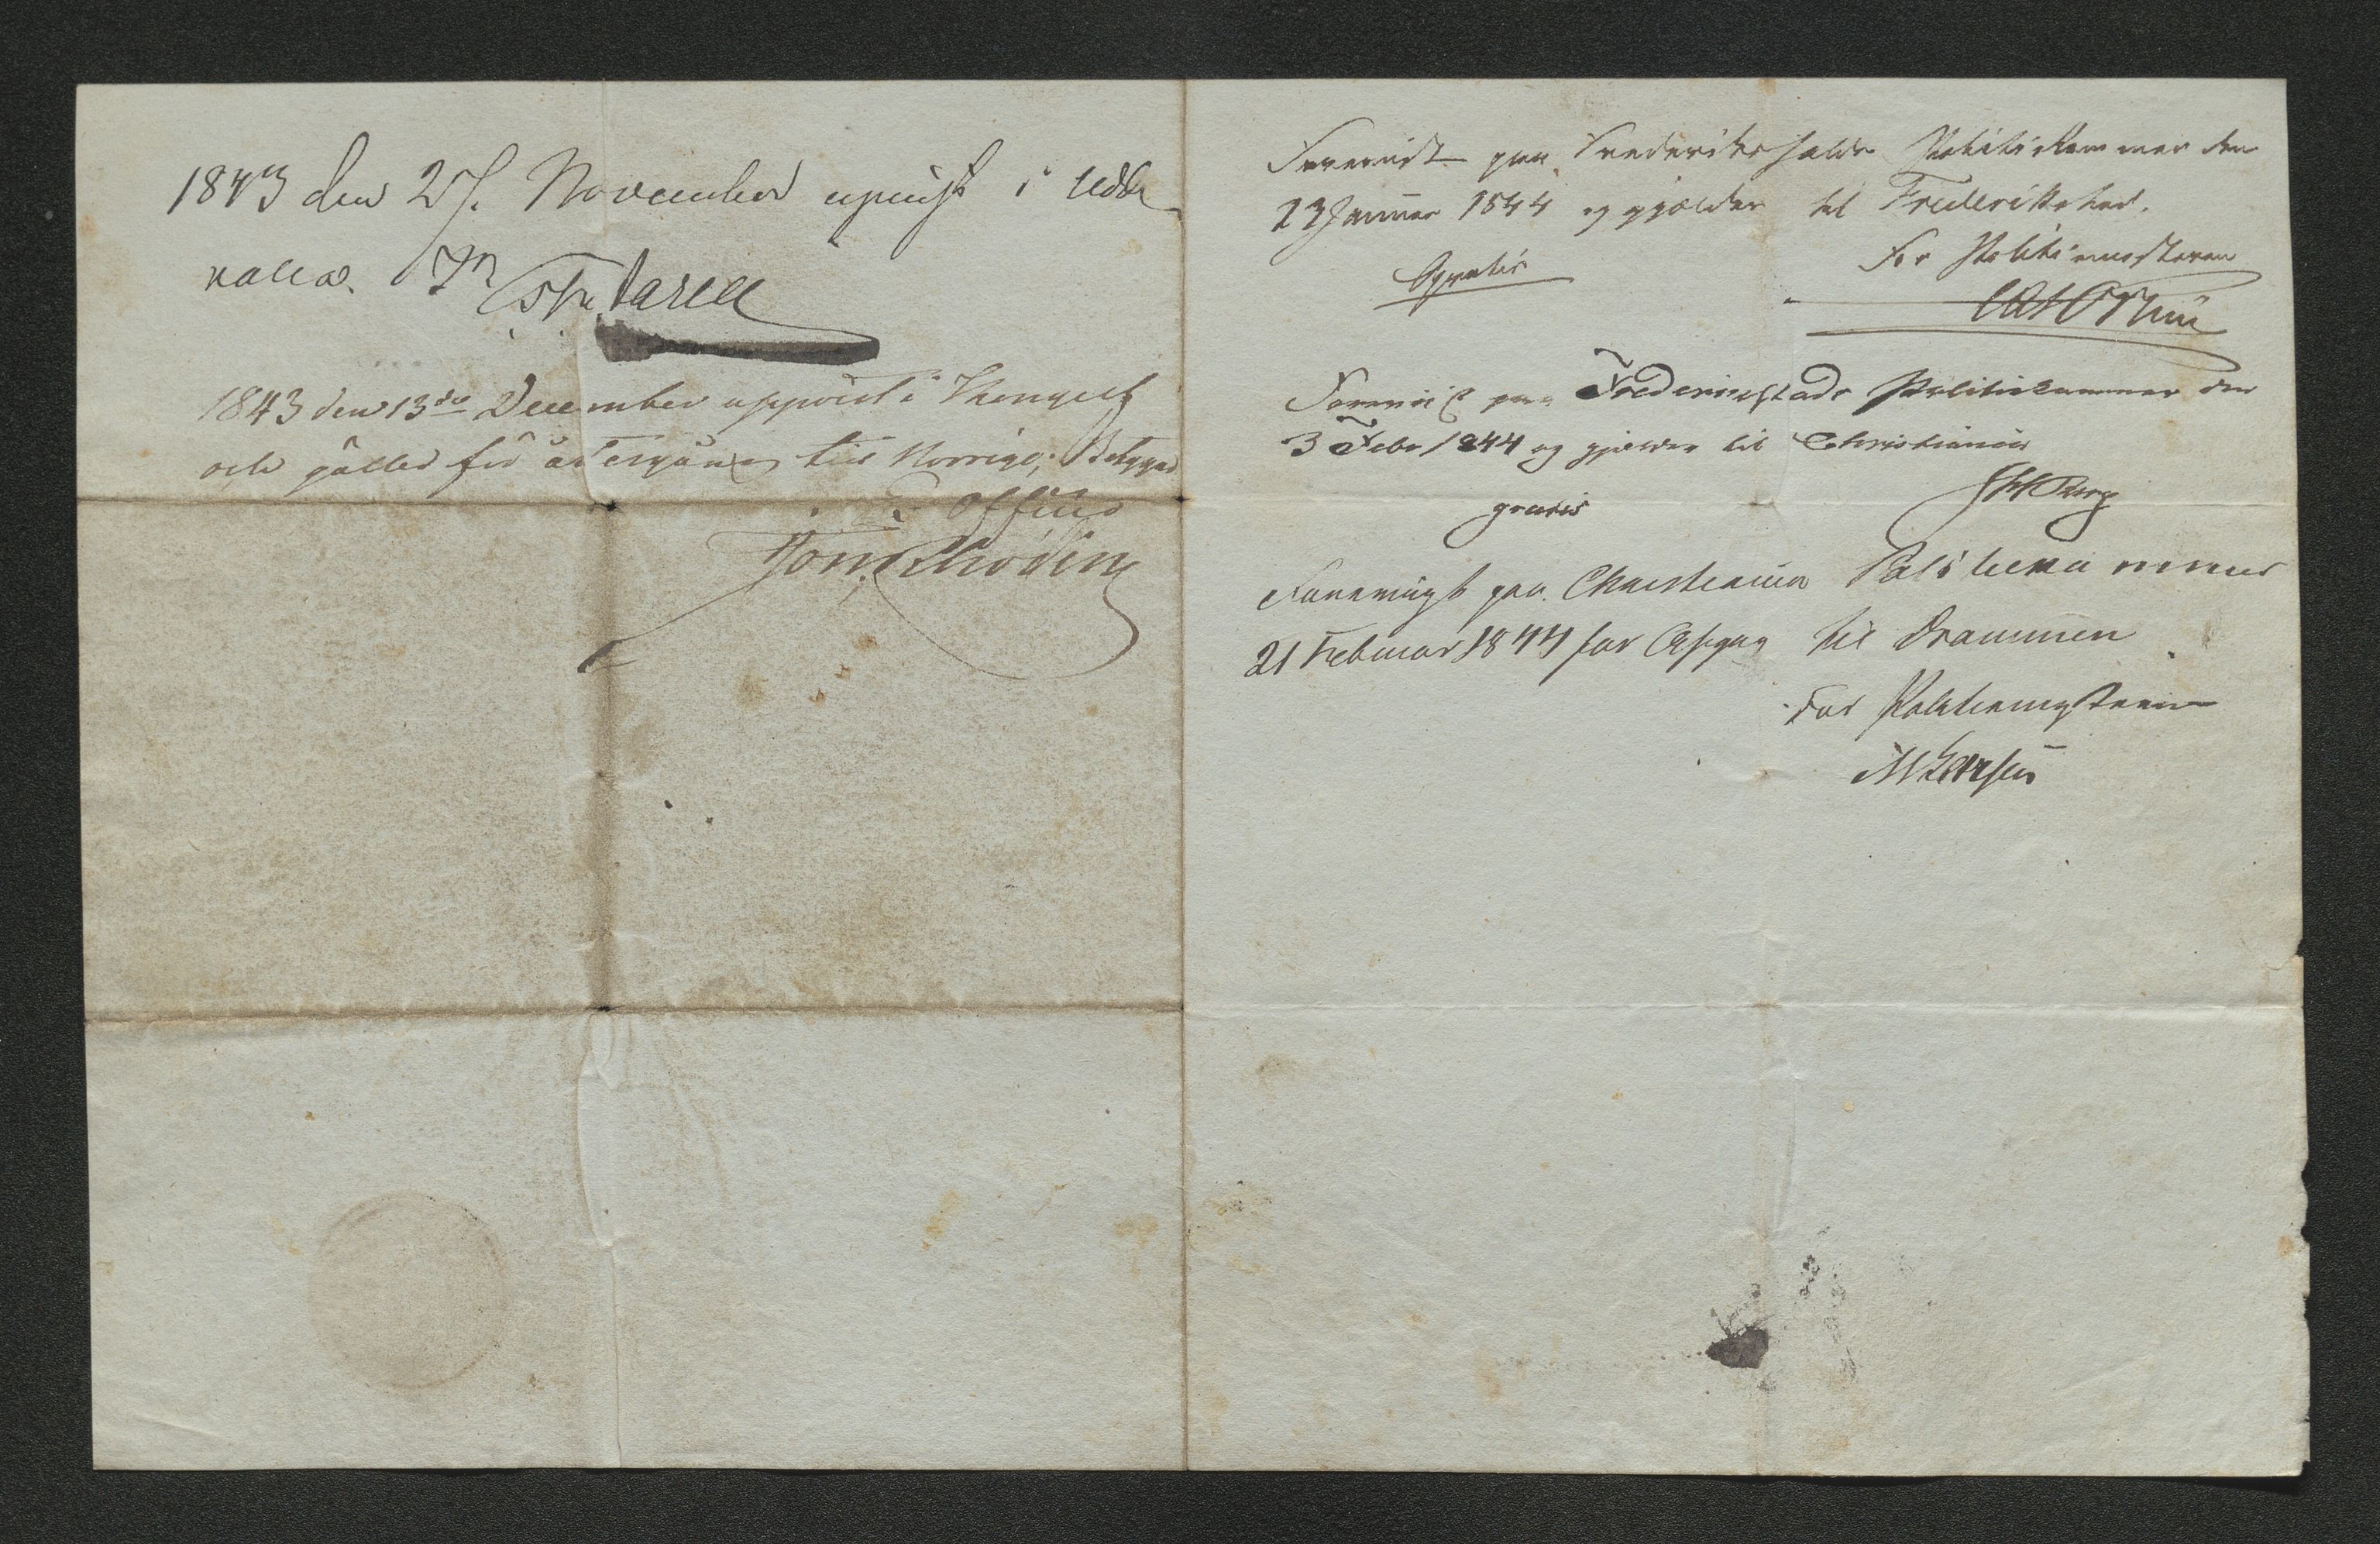 1843 den 27. November upvist i Udde
valla.
1843 den 13de December uppvist i Kongelf
och gäller för återgång till Norrige; Betygar
Ex Officio
Foreviist paa Frederikshalds Politikammer den
23 Januar 1844 og gjælder til Frederikstad.
Gratis
For Politimesteren
Foreviist paa Frederikstads Politiekammer den
3 Febr 1844 og gjælder til Christiania
gratis
Foreviist paa Christiania Politiekammer
21 Februar 1844 for Afgang til Drammen
For Politiemesteren
M Larsen